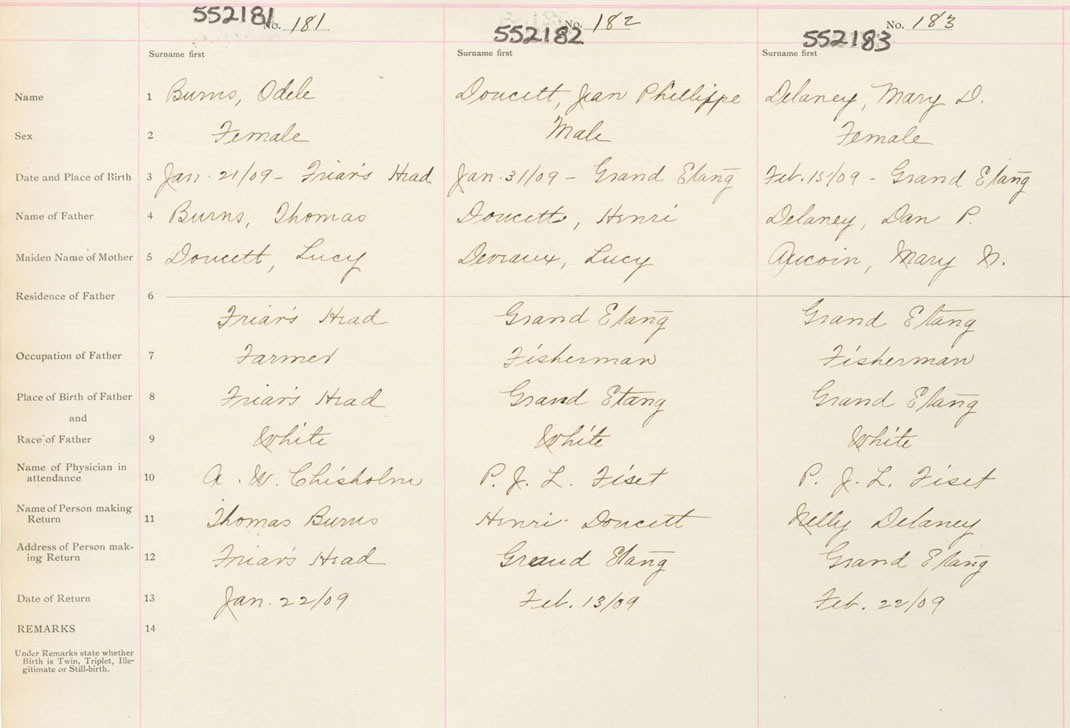 552181 No. 181 552182 No. 182 552183 No. 183
Surname first Surname first Surname first
Name 1 Burns, Odele Doucett, Jean Phillippe Delaney, Mary D.
Sex 2 Female Male Female
Date and Place of Birth 3 Jan. 21/09 - Friar's Head Jan. 31/09 - Grand Etang Feb. 15/09 - Grand Etang
Name of Father 4 Burns, Thomas Doucett, Henri Delaney, Dan P.
Maiden Name of Mother 5 Doucett, Lucy Deviaux, Lucy Aucoin, Mary N.
Residence of Father 6
Friar's Head Grand Etang Grand Etang
Occupation of Father 7 Farmer Fisherman Fisherman
Place of Birth of Father 8 Friar's Head Grand Etang Grand Etang
and
Race of Father 9 White White White
Name of Physician in
attendance 10 A. W. Chisholm P. J. L. Fiset P. J. L. Fiset
Name of Person making
Return 11 Thomas Burns Henri Doucett Nelly Delaney
Address of Person mak-
ing Return 12 Friar's Head Grand Etang Grand Etang
Date of Return 13 Jan. 22/09 Feb. 13/09 Feb. 22/09
REMARKS 14
Under Remarks state whether
Birth is Twin, Triplet, Ille-
gitimate or Still-birth.